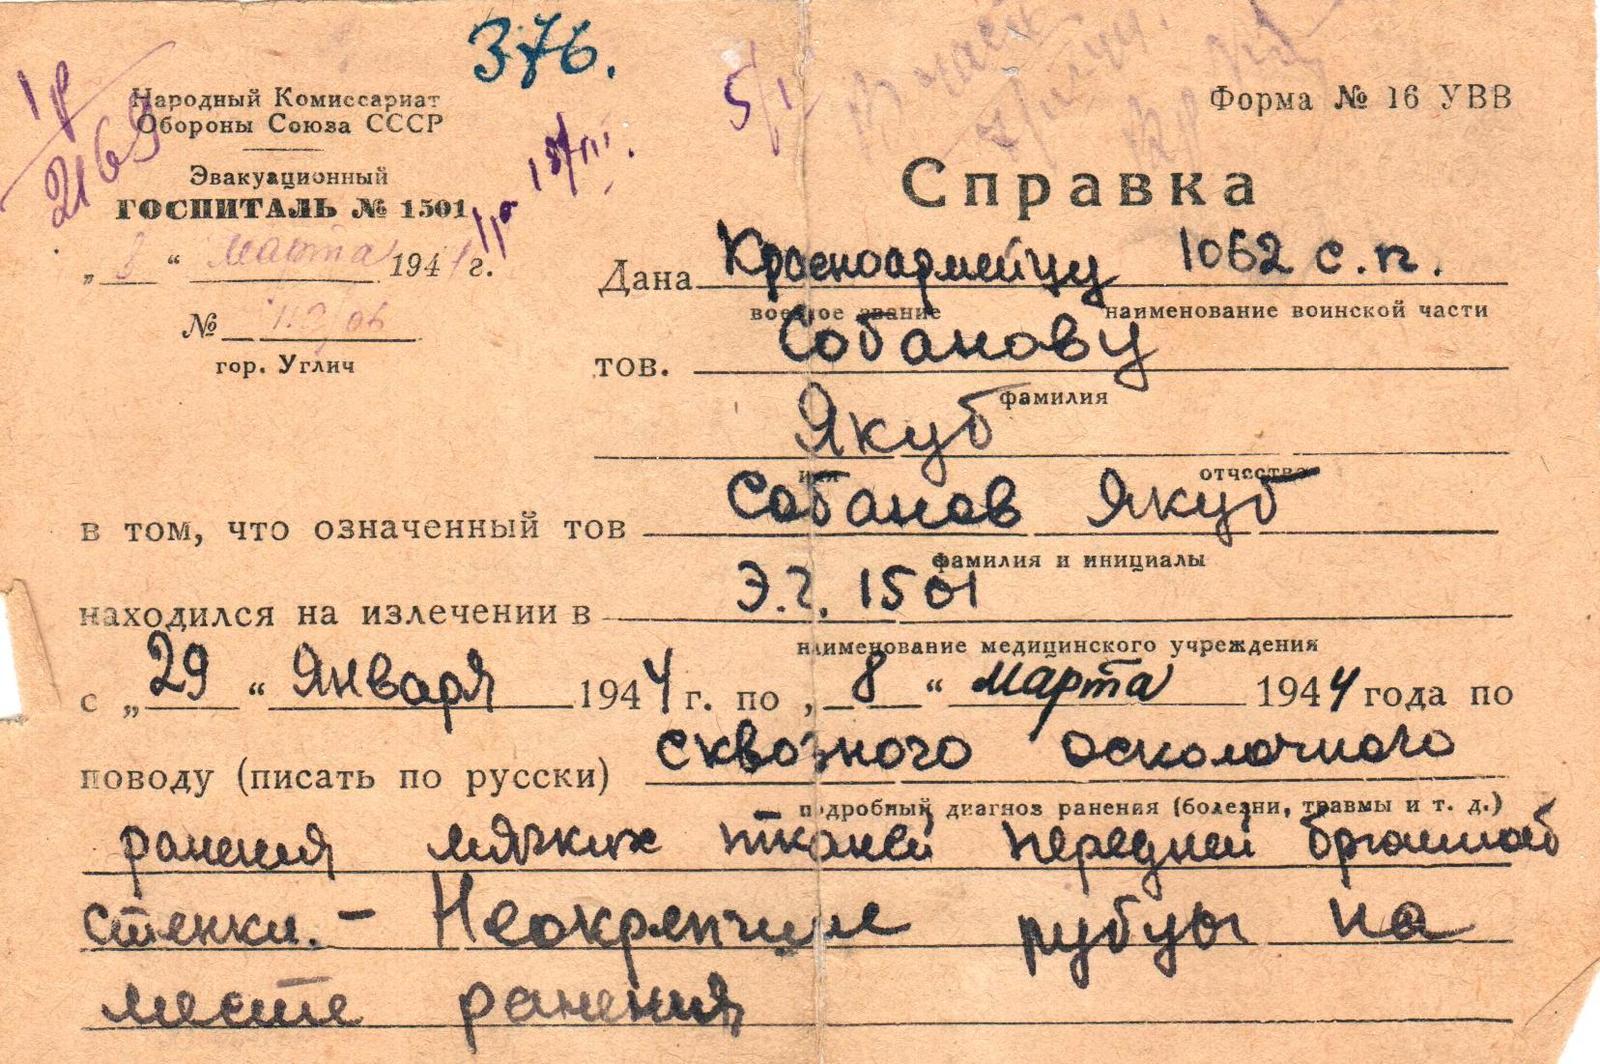 376.
1р
2169
5/I
Народный Комиссариат
Обороны Союза ССР
Форма № 16 УВВ
Эвакуационный
ГОСПИТАЛЬ № 1501
Справка
„ 8 “ марта 1944 г.
Дана Красноармейцу 1062 с.п.
военное звание наименование воинской части
№
тов. Собанову
гор. Углич
фамилия
Якуб
имя отчество
в том, что означенный тов Собанов Якуб
фамилия и инициалы
находился на излечении в Э.г. 1501
наименование медицинского учреждения
с „ 29 “ Января 1944 г. по „ 8 “ марта 1944 года по
поводу (писать по русски) сквозного осколочного
подробный диагноз ранения (болезни, травмы и т. д.)
ранения мягких тканей передней брюшной
стенки. – Неокрепшие рубцы на
месте ранения